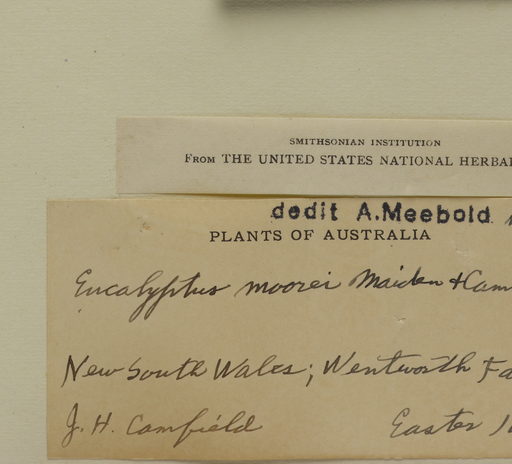 SMITHSONIAN INSTITUTION
FROM THE UNITED STATES NATIONAL HERBA
dedit A.Meebold
PLANTS OF AUSTRALIA
Eucalyptus moorei Maiden & Cam
New South Wales; Wentworth Fa
J. H. Camfield Easter 1